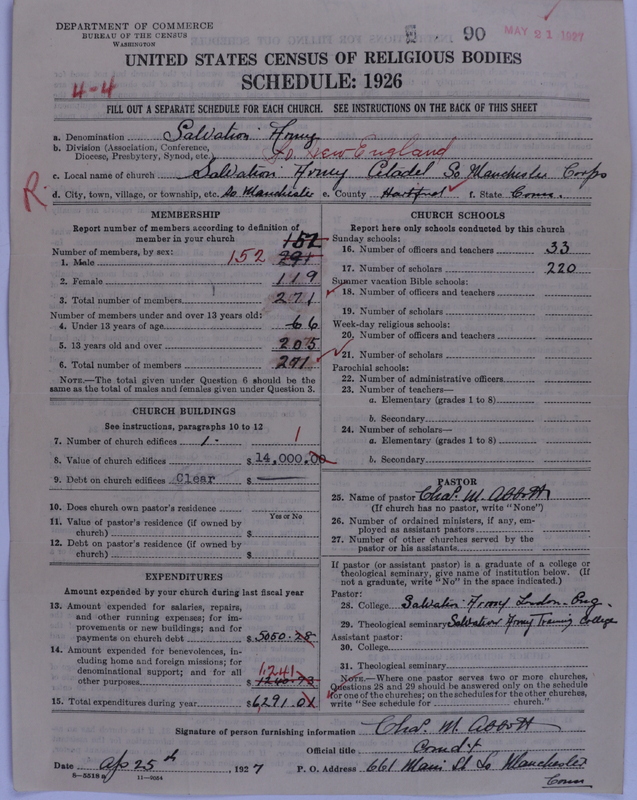 DEPARTMENT OF COMMERCE
BUREAU OF THE CENSUS
WASHINGTON
90
MAY 21 1927
UNITED STATES CENSUS OF RELIGIOUS BODIES
SCHEDULE: 1926
4-4
FILL OUT A SEPARATE SCHEDULE FOR EACH CHURCH. SEE INSTRUCTIONS ON THE BACK OF THIS SHEET
a. Denomination Salvation Army
b. Division (Association, Conference, Diocese, Presbytery, Synod, etc.) So New England
c. Local name of church Salvation Army Citadel So Manchester Corps
R.
d. City, town, village, or township, etc. So Manchester e. County Hartford f. State Conn.
MEMBERSHIP
Report number of members according to definition of
member in your church
152
Number of members, by sex:
1. Male 152 291
2. Female 119
3. Total number of members 271
Number of members under and over 13 years old:
4. Under 13 years of age 66
5. 13 years old and over 205
6. Total number of members 271
NOTE.—The total given under Question 6 should be
same as the total of males and females given under Question 3.
CHURCH BUILDINGS
See instructions, paragraphs 10 to 12
7. Number of church edifices 1- 1
8. Value of church edifices $ 14,000.00
9. Debt on church edifices Clear $
10. Does church own pastor's residence
Yes or No
11. Value of pastor's residence (if owned by
church) $
12. Debt on pastor's residence (if owned by
church) $
EXPENDITURES
Amount expended by your church during last fiscal year
13. Amount expended for salaries, repairs,
and other running expenses; for im-
provements or new buildings; and for
payments on church debt $ 5050.28
14. Amount expended for benevolences, in-
cluding home and foreign missions; for
denominational support; and for all
other purposes $ 1,241 1240.73
15. Total expenditures during year $ 6,291.01
CHURCH SCHOOLS
Report here only schools conducted by this church
Sunday schools:
16. Number of officers and teachers 33
17. Number of scholars 220
Summer vacation Bible schools:
18. Number of officers and teachers
19. Number of scholars
Week-day religious schools:
20. Number of officers and teachers
21. Number of scholars
Parochial schools:
22. Number of administrative officers
23. Number of teachers—
a. Elementary (grades 1 to 8)
b. Secondary
24. Number of scholars—
a. Elementary (grades 1 to 8)
b. Secondary
PASTOR
25. Name of pastor Chas. M. Abbott
(If church has no pastor, write "None")
26. Number of ordained ministers, if any, em-
ployed as assistant pastors
27. Number of other churches served by the
pastor or his assistants
If pastor (or assistant pastor) is a graduate of a college or
theological seminary, give name of institution below. (If
not a graduate, write "No" in the space indicated.)
Pastor:
28. College Salvation Army London-Eng.
29. Theological seminary Salvation Army Training College
Assistant pastor:
30. College
31. Theological seminary
NOTE.—Where one pastor serves two or more churches,
Questions 28 and 29 should be answered only on the schedule
for one of the churches; on the schedules for the other churches,
write "See schedule for church."
Signature of person furnishing information Chas. M. Abbott
Official title Comdt
Date Ap 25th 1927 P. O. Address 661 Main St So Manchester
Conn
8—5518a 11—9554